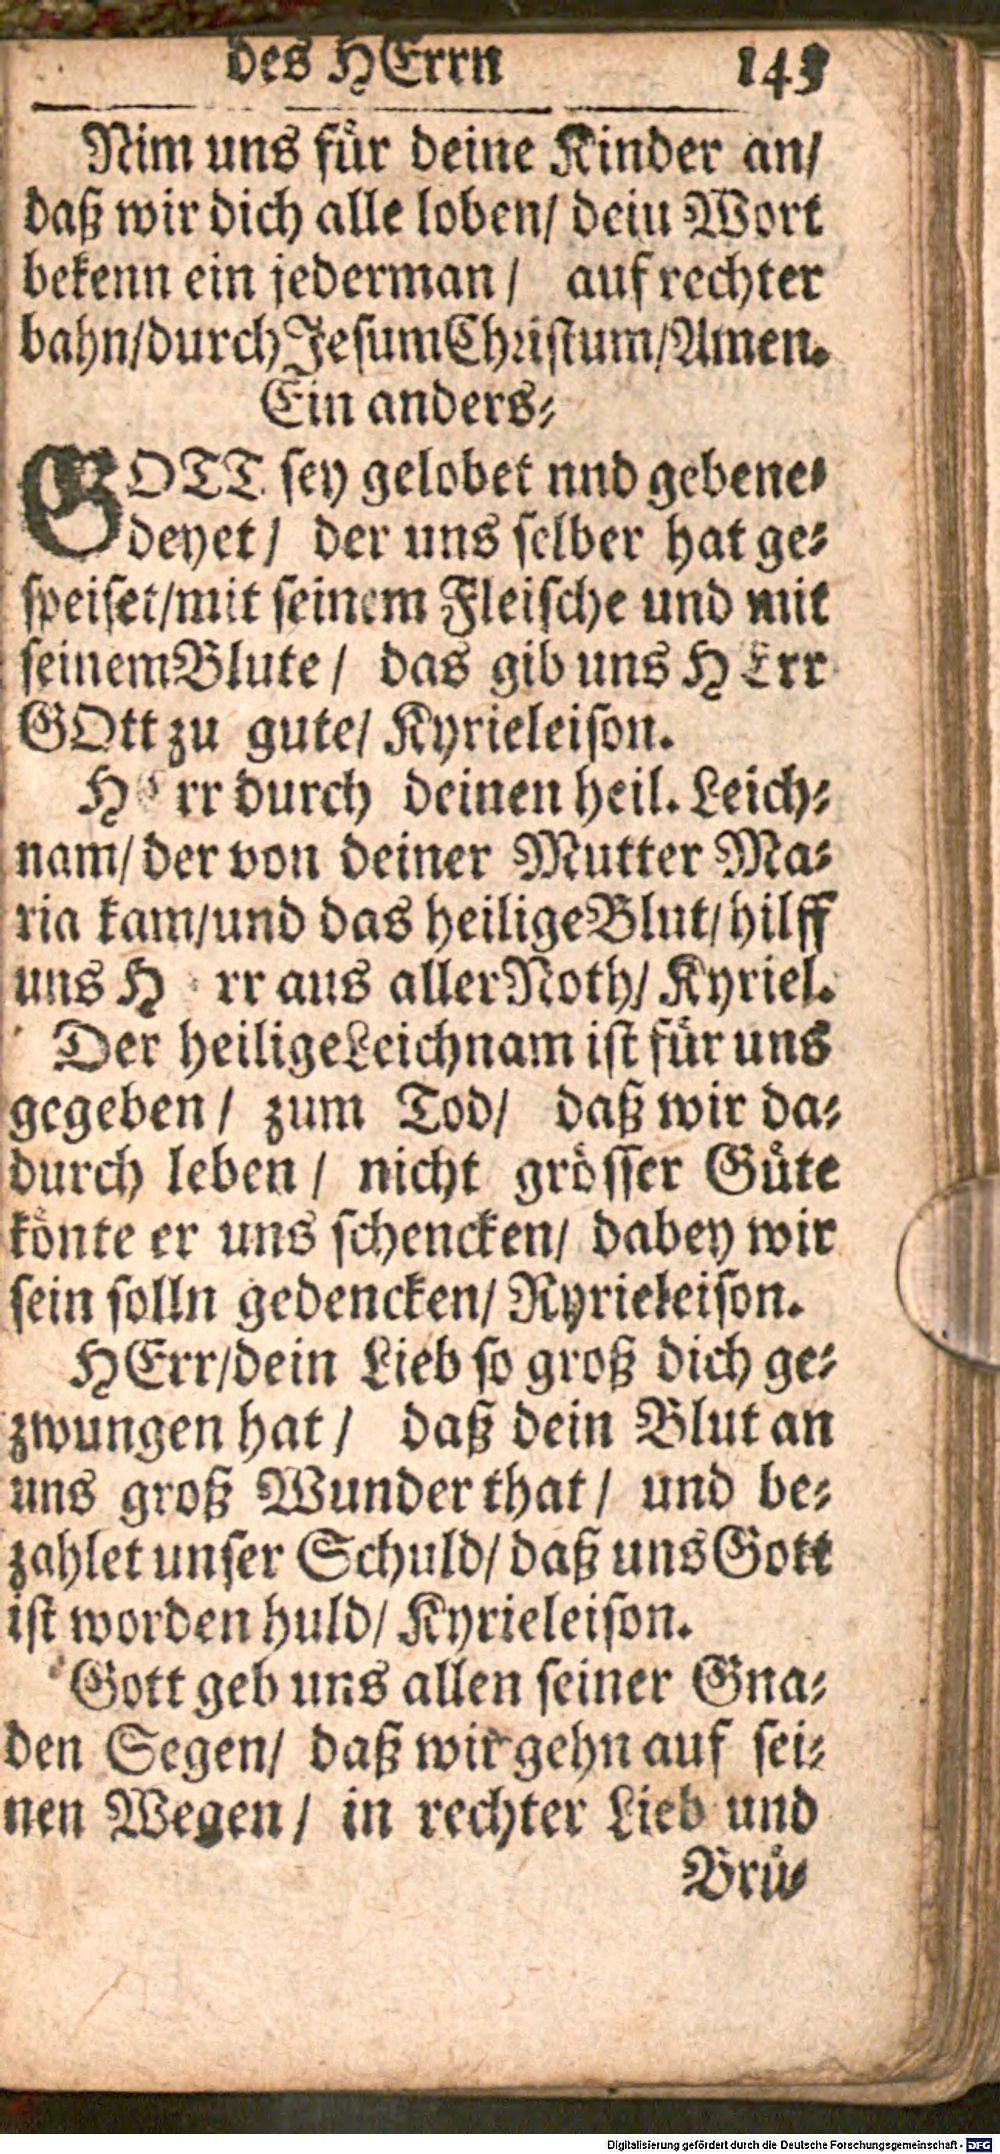 des HErrn 143
Nim uns für deine Kinder an/
daß wir dich alle loben/ deiu Wort
bekenn ein jederman/ auf rechter
bahn/durch JesumChristum/Amen.
Ein anders-
GOTT sey gelobet nnd gebene-
deyet/ der uns selber hat ge-
speiset/mit seinem Fleische und mit
seinemBlute/ das gib uns HErr
GOtt zu gute/ Kyrieleison.
HErr durch deinen heil. Leich-
nam/ der von deiner Mutter Ma-
ria kam/und das heiligeBlut/hilff
uns H rr aus allerNoth/ Kyriel.
Der heiligeLeichnam ist für uns
gegeben/ zum Tod/ daß wir da-
durch leben/ nicht grösser Güte
könte er uns schencken/ dabey wir
sein solln gedencken/ Ryrieleison.
HErr/dein Lieb so groß dich ge-
zwungen hat/ daß dein Blut an
uns groß Wunder that/ und be-
zahlet unser Schuld/ daß uns Gott
ist worden huld/ Kyrieleison.
Gott geb uns allen seiner Gna-
den Segen/ daß wir gehn auf sei-
nen Wegen/ in rechter Lieb und
Brü-
Digitalisierung gefördert durch die Deutsche Forschungsgemeinschaft - DFG